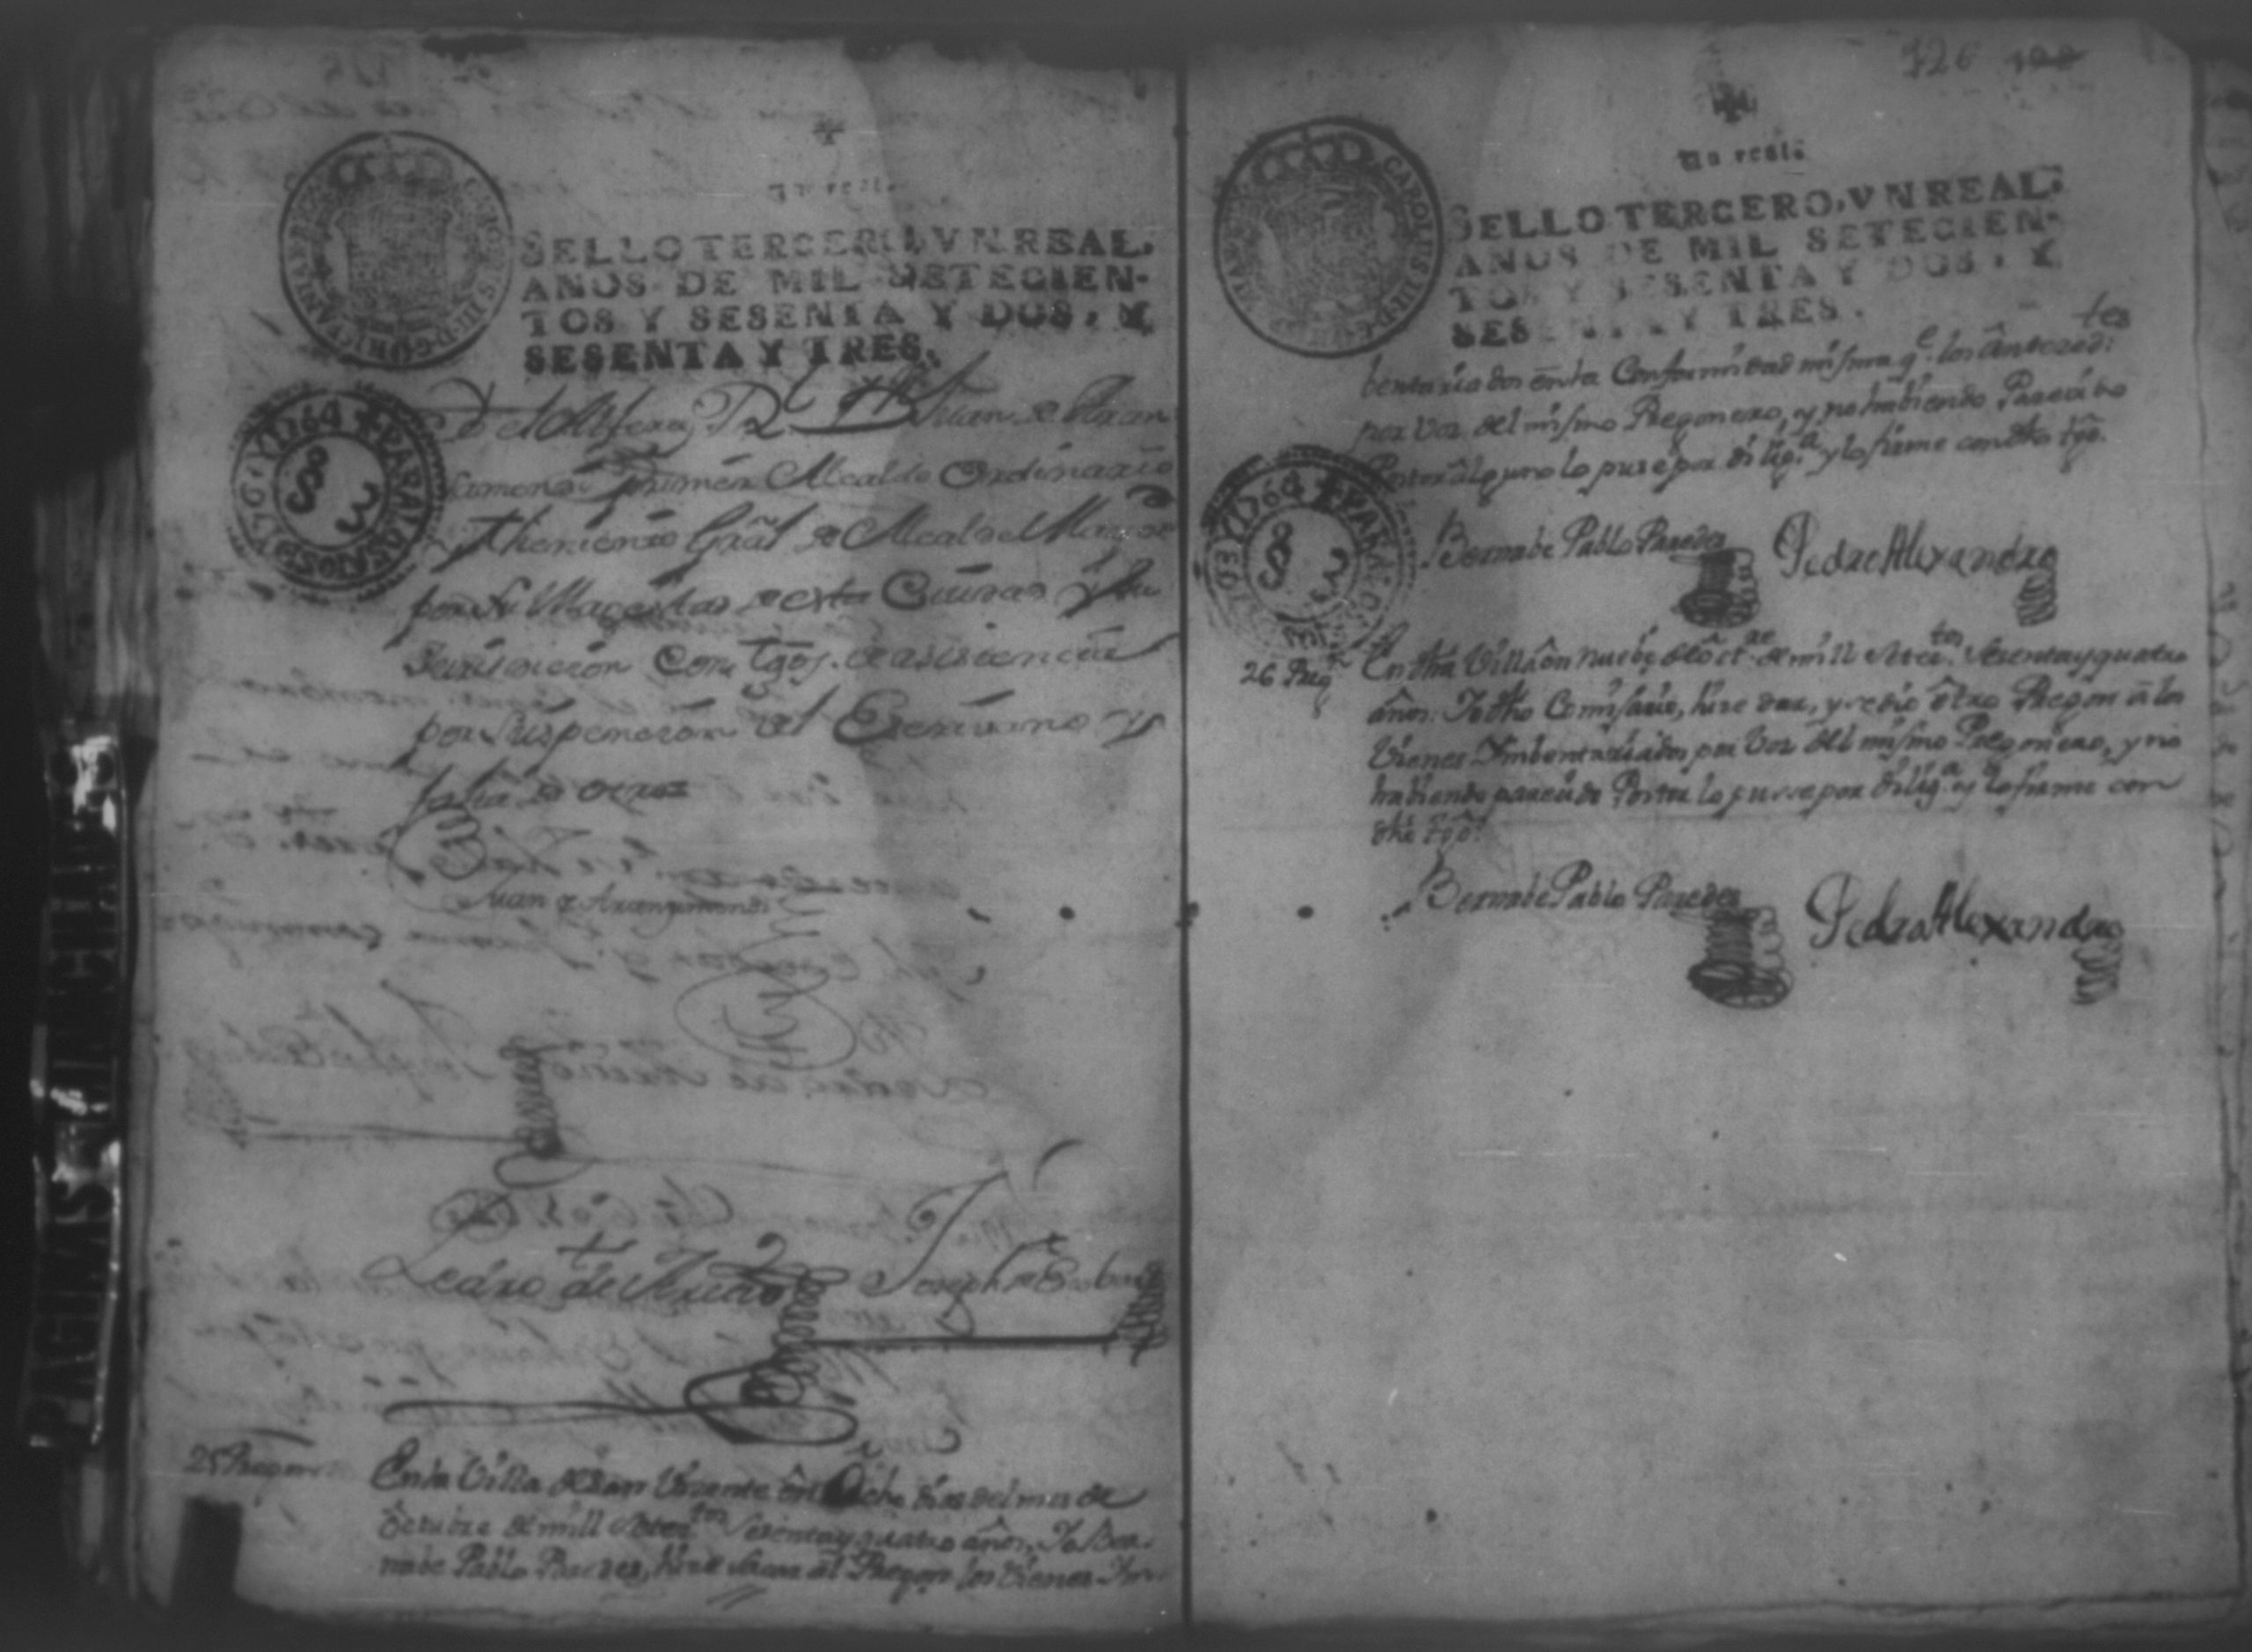 Un real.
SELLO TERCERO, VN REAL,
AÑOS DE MIL SETECIEN-
TOS Y SESENTA Y DOS, Y
SESENTA Y TRES.
1764 PARA LOS AÑOS DE 176
Juan de Aran
Primer Alcalde Ordinario
y theniente Gräl de Alcalde Maior
por Su Magestad de esta Ciudad y su
Jurisdiccion Con tgos. de asistencia
por Suspencion del Escrivano y
falta de otro
Juan de Aranzamendi
Pedro de
Joseph de
25 Pregon
En la Villa de San Vizente ên Ocho dias del mes de
Octubre de mill Setectos Sesenta y quatro años. Yo Ber-
nabe Pablo Paredes, hize sacar al Pregon los bienes Im-
126
Un real.
CAROLUS III D G
SELLO TERCERO, VN REAL,
AÑOS DE MIL SETECIEN-
TOS Y SESENTA Y DOS, Y
SESENTA Y TRES.
1764 PARA LOS
bentariados ên la Conformidad misma qe. los ânteceds.tes
por Voz del mismo Pregonero, y no habiendo Parecido
Postor âlguno lo puse por dilig.a y lo firme con dho tgo.
Bernabe Pablo Paredes Pedro Alexandro
26 Preg.n
En dha Villa ên nuebe de Octre de mill Setectos Sesenta y quatro
años. Yo dho Comisario, hize dar, y se dio ôtro Pregon â los
bienes Imbentariados por Voz del mismo Pregonero, y no
habiendo parecido Postor lo puse por dilig.a y lo firme con
dho tgo.
Bernabe Pablo Paredes Pedro Alexandro